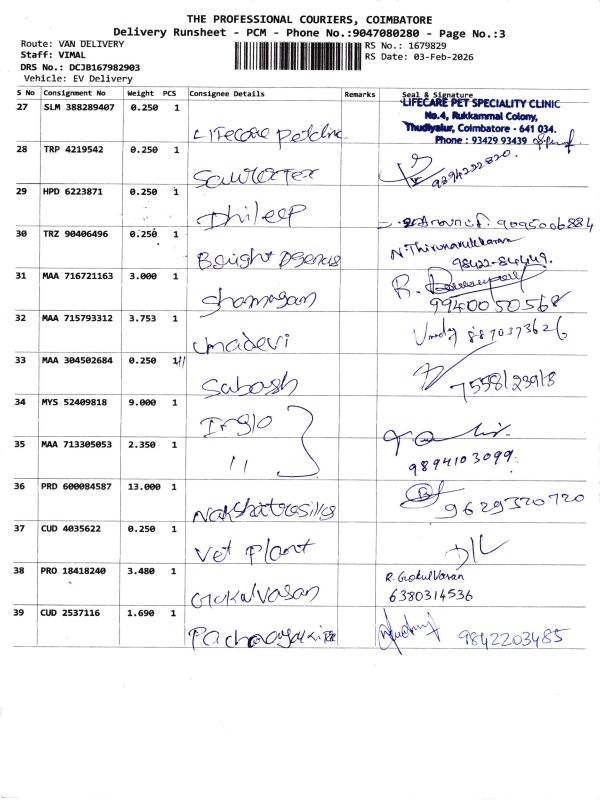 THE PROFESSIONAL COURIERS, COIMBATORE
Delivery Runsheet - PCM - Phone No.:9047080280 - Page No.:3
Route: VAN DELIVERY
RS No.: 1679829
Staff: VIMAL
RS Date: 03-Feb-2026
DRS No.: DCJB167982903
Vehicle: EV Delivery
S No Consignment No Weight PCS Consignee Details Remarks Seal & Signature
27 SLM 388289407 0.250 1 Lifecare
LIFECARE PET SPECIALITY CLINIC
No.4, Rukkammal Colony,
Thudiyalur, Coimbatore - 641 034.
Phone : 93429 93439
28 TRP 4219542 0.250 1
9894222820.
29 HPD 6223871 0.250 1 Dhileep
9095006884
30 TRZ 90406496 0.250 1 Bright
N.Thirunavukkarasu
98422-84449.
31 MAA 716721163 3.000 1 Shanmugam
R.
9940050568
32 MAA 715793312 3.753 1 Umadevi
8870373626
33 MAA 304502684 0.250 1 Sabash
34 MYS 52409818 9.000 1
35 MAA 713305053 2.350 1 11
9894103099.
36 PRD 600084587 13.000 1
9629320720
37 CUD 4035622 0.250 1 Vet Plant
38 PRO 18418240 3.480 1 Gokulvasan
R. Gokulvasan
6380314536
39 CUD 2537116 1.690 1
9842203485